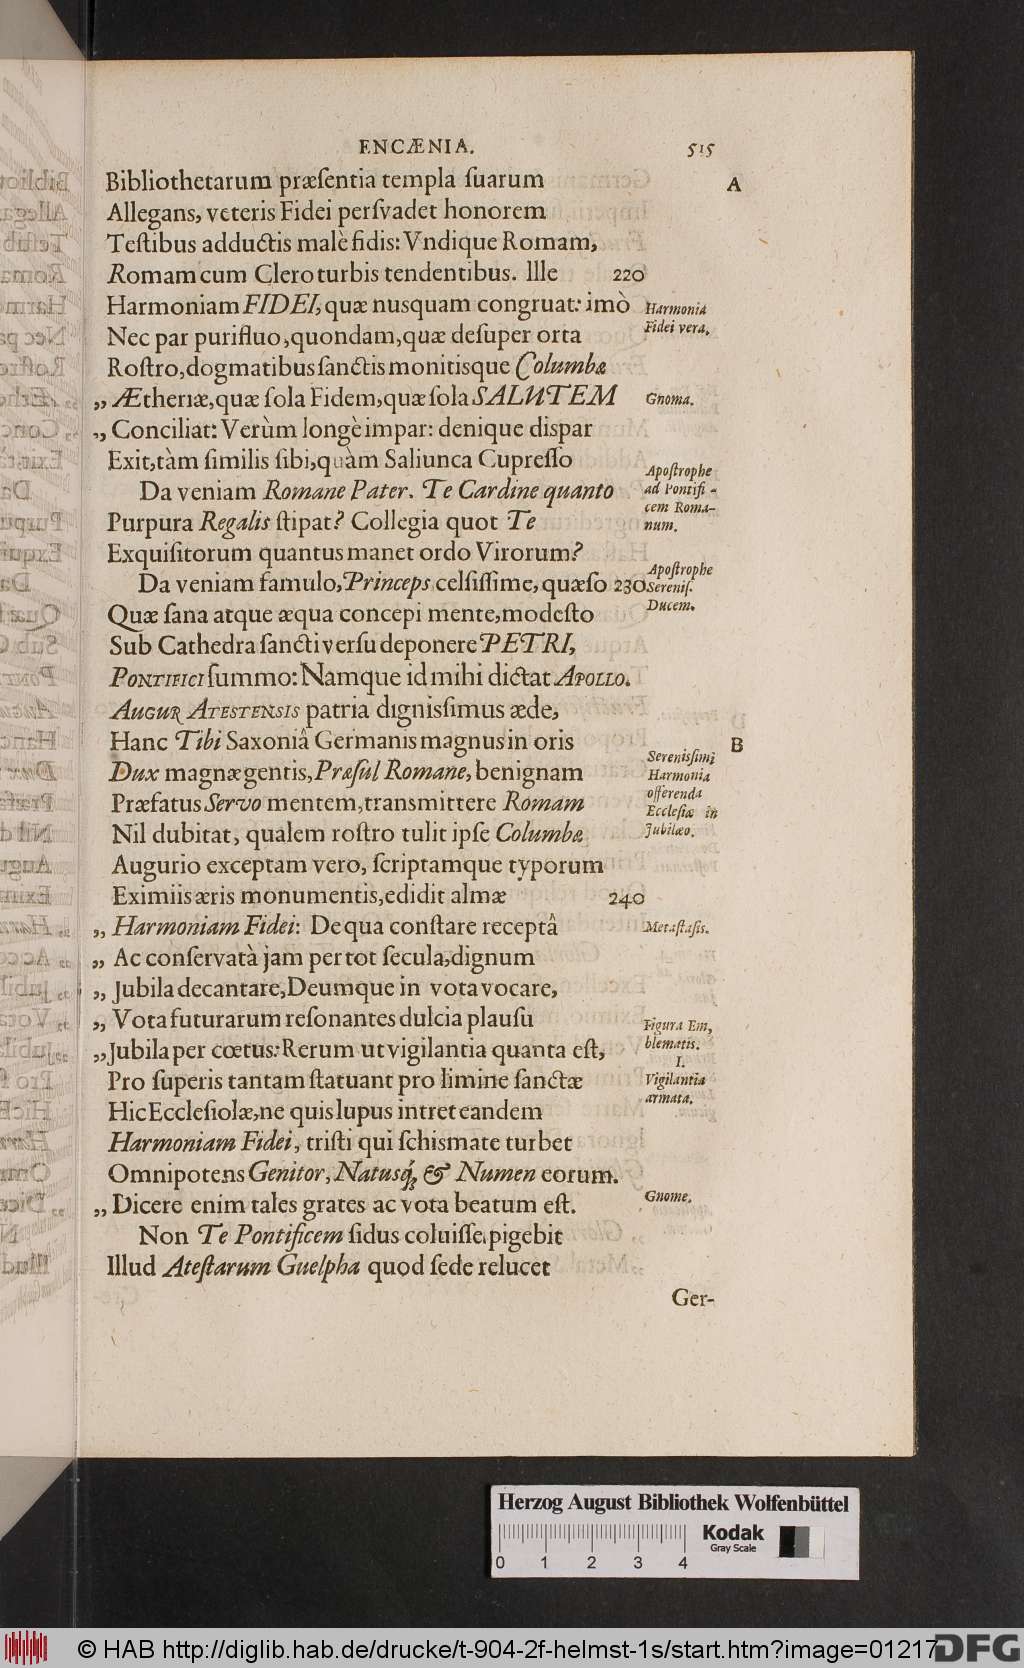 ENCÆNIA. 515
Bibliothetarum præſentia templa ſuarum A
Allegans, veteris Fidei perſvadet honorem
Teſtibus adductis malè fidis: Vndique Romam,
Romam cum Clero turbis tendentibus. Ille 220
Harmoniam FIDEI, quæ nusquam congruat: imò
Harmonia
Fidei vera.
Nec par purifluo, quondam, quæ deſuper orta
Roſtro, dogmatibus ſanctis monitisque Columbæ
„ Ætheriæ, quæ ſola Fidem, quæ ſola SALUTEM Gnoma.
„ Conciliat: Verùm longè impar: denique dispar
Exit, tàm ſimilis ſibi, quàm Saliunca Cupreſſo
Da veniam Romane Pater. Te Cardine quanto
Apoſtrophe
ad Pontifi-
cem Roma-
num.
Purpura Regalis ſtipat? Collegia quot Te
Exquiſitorum quantus manet ordo Virorum?
Da veniam famulo, Princeps celſiſſime, quæſo 230
Apoſtrophe
Sereniſ.
Ducem.
Quæ ſana atque æqua concepi mente, modeſto
Sub Cathedra ſancti verſu deponere PETRI,
PONTIFICI ſummo: Namque id mihi dictat APOLLO.
AUGUR ATESTENSIS patria dignisſimus æde,
Hanc Tibi Saxoniâ Germanis magnus in oris B
Dux magnæ gentis, Præſul Romane, benignam
Sereniſſimi
Harmonia
offerenda
Eccleſiæ in
Jubilæo.
Præfatus Servo mentem, transmittere Romam
Nil dubitat, qualem roſtro tulit ipſe Columbæ
Augurio exceptam vero, ſcriptamque typorum
Eximiis æris monumentis, edidit almæ 240
„ Harmoniam Fidei: De qua conſtare receptâ Metaſtaſis.
„ Ac conſervatà jam per tot ſecula, dignum
„ Jubila decantare, Deumque in vota vocare,
„ Vota futurarum reſonantes dulcia plauſu
„ Jubila per cœtus: Rerum ut vigilantia quanta eſt,
Figura Em,
blematis.
I.
Vigilantia
armata.
Pro ſuperis tantam ſtatuant pro limine ſanctæ
Hic Eccleſiolæ, ne quis lupus intret eandem
Harmoniam Fidei, triſti qui ſchismate turbet
Omnipotens Genitor, Natusq́;, & Numen eorum.
„ Dicere enim tales grates ac vota beatum eſt. Gnome.
Non Te Pontificem ſidus coluiſſe, pigebit
Illud Ateſtarum Guelpha quod ſede relucet
Ger-
Herzog August Bibliothek Wolfenbüttel
0 1 2 3 4
Kodak
Gray Scale
© HAB http://diglib.hab.de/drucke/t-904-2f-helmst-1s/start.htm?image=01217
DFG